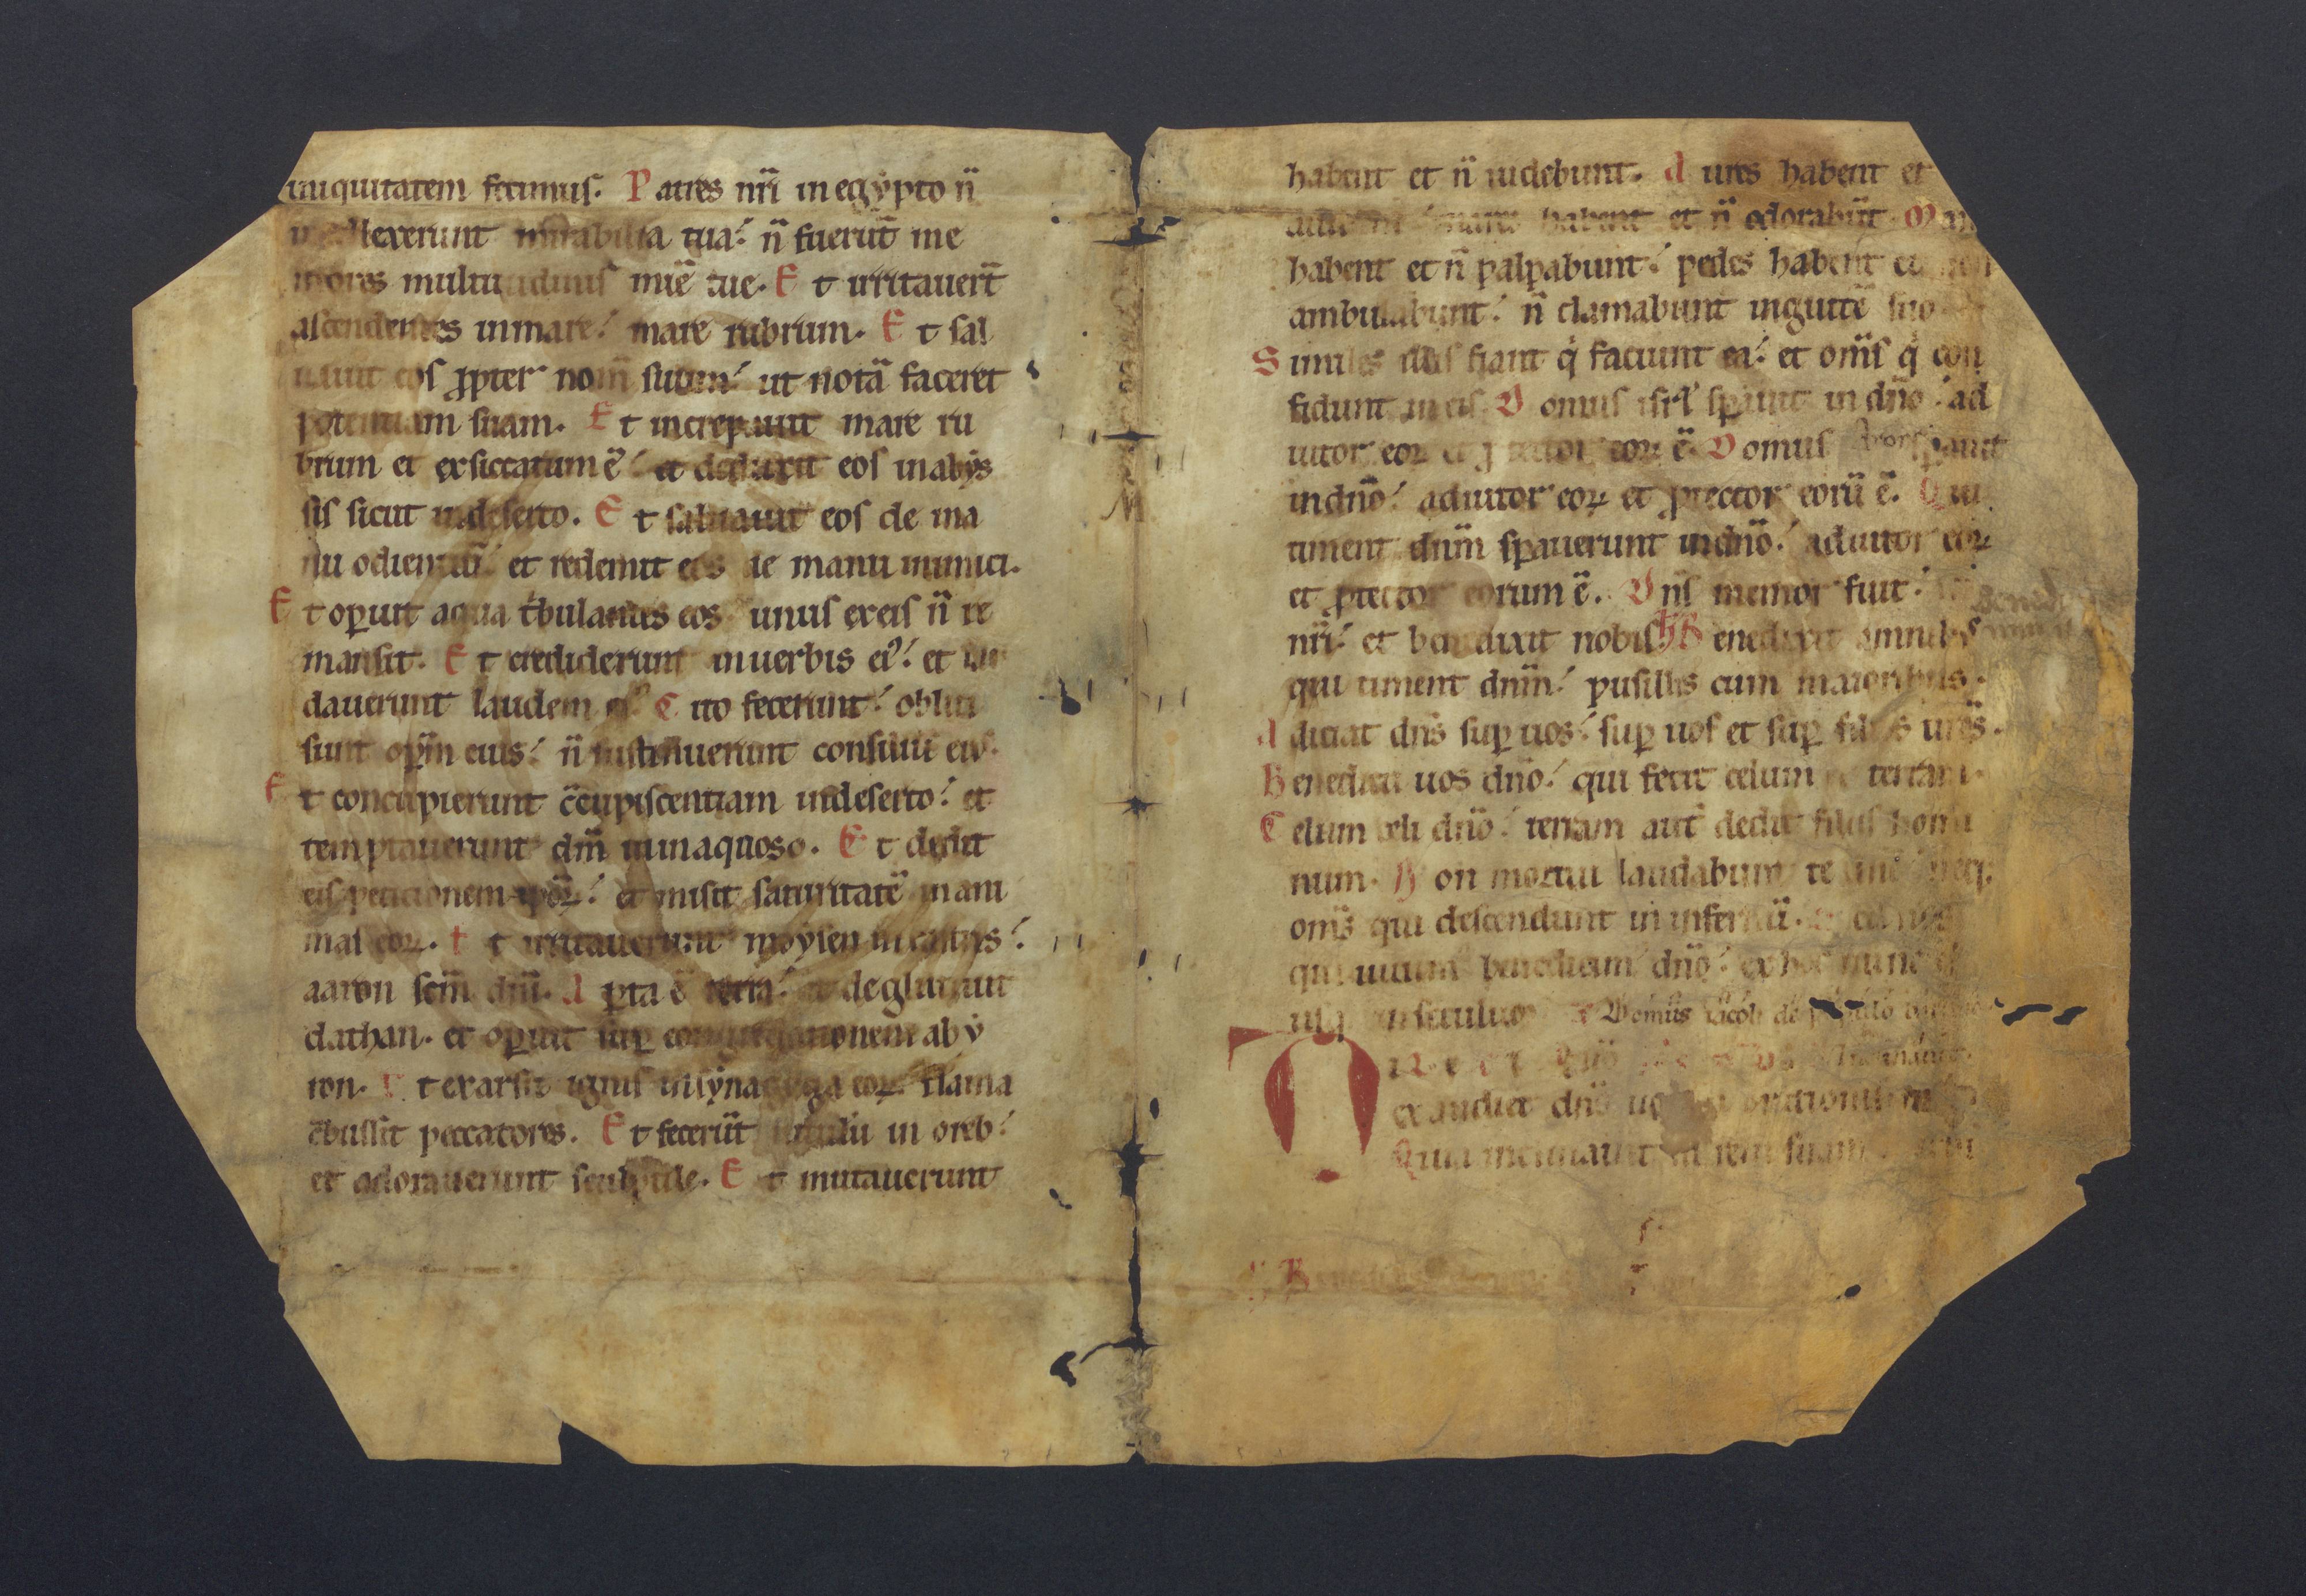 iniquitatem fecimus. Patres nr̄i in egẏpto n̄
llexerunt mirabilia tua: n̄ fuerūt me
mores multitudinis mīe tue. Et irritauer̄t
ascendentes in mare: mare rubrum. Et sal
uauit eos ꝓpter nom̄ suum: ut notā faceret
potentiam suam. Et increpauit mare ru
brum et exsiccatum ē: et deduxit eos in abẏs
sis sicut in deserto. Et saluauit eos de ma
nu odientiū: et redemit eos de manu inimici.
Et oꝑuit aqua t̄bulantes eos unus ex eis n̄ re
mansit. Et crediderunt in uerbis eiꝰ: et lau
dauerunt laudem eiꝰ. Cito fecerunt: obliti
sunt oꝑm̄ eius: n̄ sustinuerunt consiliū eiꝰ.
Et concupierunt c̄cupiscentiam in deserto: et
temptauerunt dm̄ in inaquoso. Et dedit
eis peticionem ipoꝝ: et misit saturitatē in ani
mas eoꝝ. Et irritauerunt moẏsen in castris:
aaron sc̄m dn̄i. Aꝑta ē terra: et deglutiuit
dathan. et oꝑuit suꝑ congregationem abẏ
ron. Et exarsit ignis in sẏnagoga eoꝝ flama
c̄bussit peccatores. Et fecerūt uitulū in oreb:
et adorauerunt sculptile. Et mutauerunt
habent et n̄ uidebunt. Aures habent et
nares habent et n̄ odorabūt. Man
habent et n̄ palpabunt: pedes habent et non
ambulabunt: n̄ clamabunt in gutt̄e suo
Similes illis fiant q̇ faciunt ea: et om̄s q̇ con
fidunt in eis. Domus isrl̄ sꝑauit in dn̄o: ad
iutor eoꝝ et ꝓtector eoꝝ ē. Domus sꝑauit
in dn̄o: adiutor eoꝝ et ꝓtector eorū ē. Qui
timent dn̄m sꝑauerunt in dn̄o: adiutor eoꝝ
et ꝓtector eorum ē. Dn̄s memor fuit:
nr̄i: et benedixit nobis Benedixit omnibꝰ
qui timent dn̄m: pusillis cum maioribus.
Adiciat dn̄s suꝑ uos: suꝑ uos et suꝑ filios ur̄os.
Benedicti uos dn̄o: qui fecit celum et terram.
Celum celi dn̄o: terram aut̄ dedit filiis homi
num. Non mortui laudabunt te dn̄e: neqꝫ
om̄s qui descendunt in infernū.
qui uiuimꝰ benedicimꝰ dn̄o: ex hoc nunc
usqꝫ in seculum Domus iacob de populo
exaudiet dn̄s uocem orationis
Quia inclinauit aurem suam